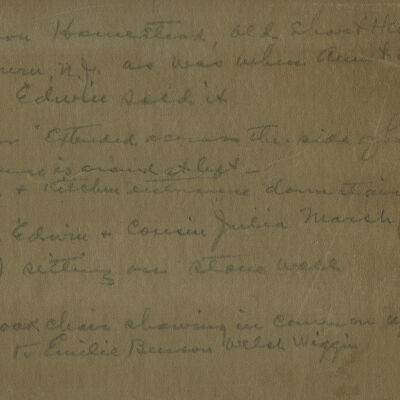 on Homestead, old Short Hi
wn, N.J. as was when Aunt
Edwin sold it
"Extended across the side of
is around at left -
& Kitchen entrance down stairs
Edwin & Cousin Julia Marsh
sitting on stone wall
oak chair showing in common
to Emilie Benson Welsh Wiggin